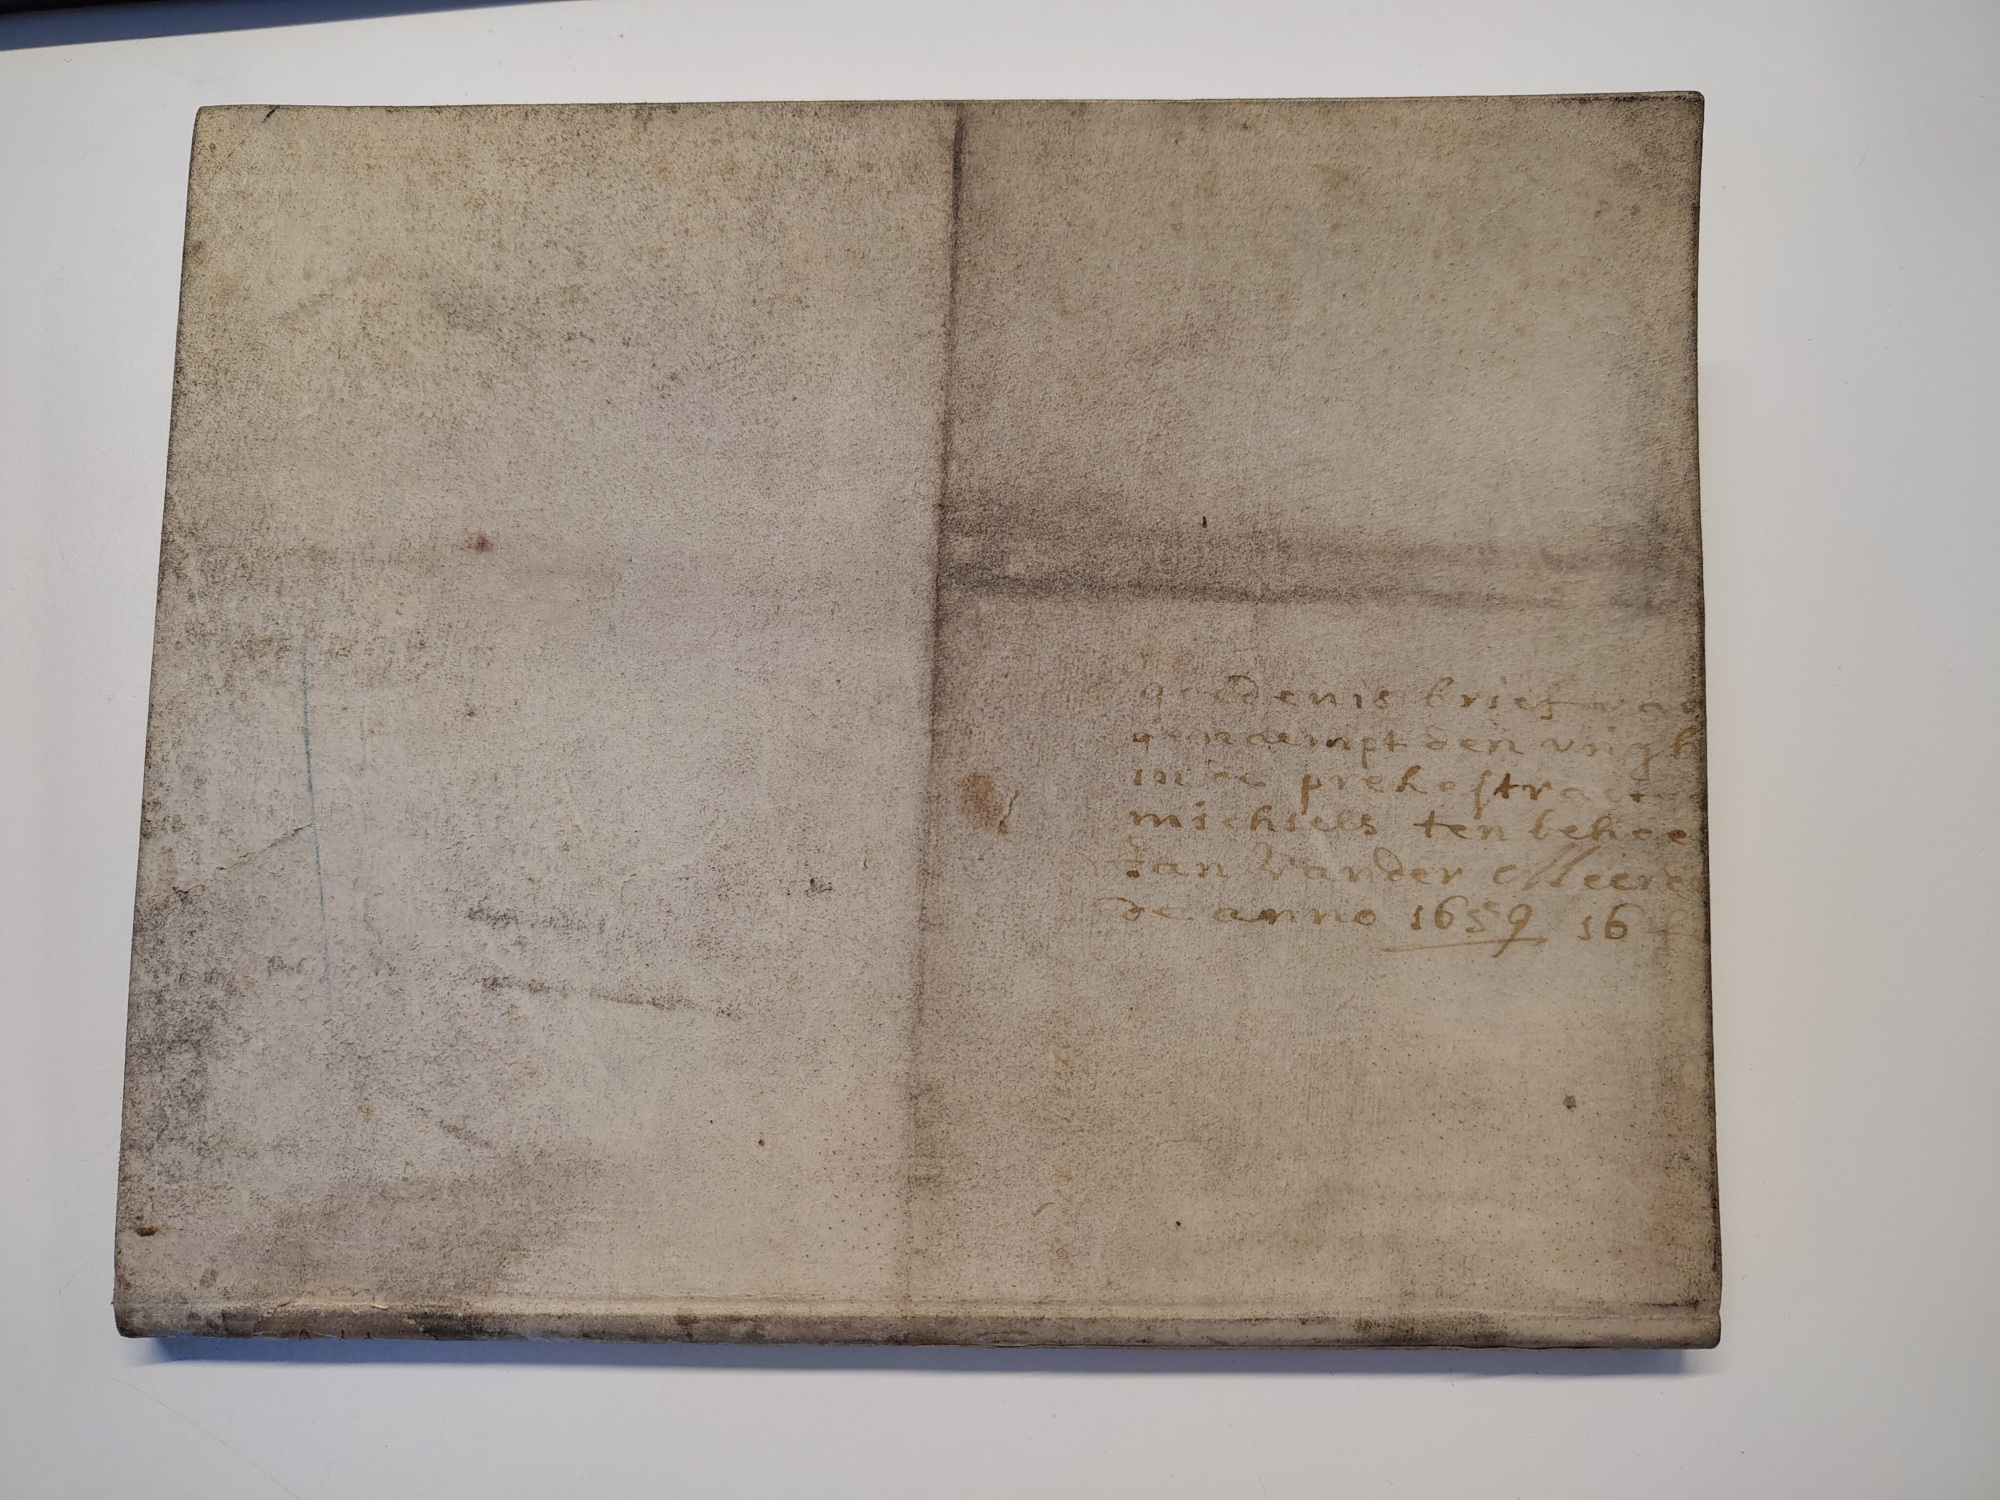 goedenis brief van
genaempt den vrigh
in de prekostraet
michiels ten behoe
Jan Vander Meere
de anno 1659 16